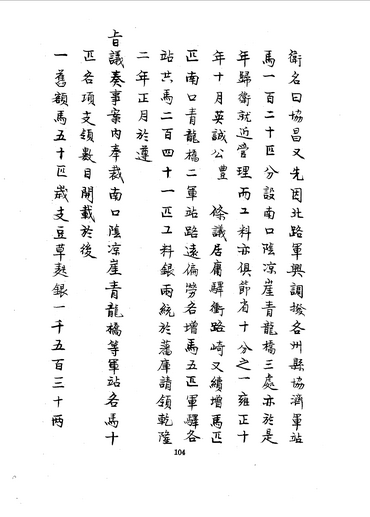 衛名曰協昌又先因北路軍興調撥各州縣協濟軍站
馬一百二十匹分設南口陰凉崖青龍橋三處亦於是
年歸衛就近管理而工料亦俱節省十分之一雍正十
年十月英誠公豐 條議居庸驛衝路崎又續增馬匹
匹南口青龍橋二軍站路遠偏勞各增馬五匹軍驛各
站共馬二百四十一匹工料銀兩統於藩庫請領乾隆
二年正月於遵
旨議奏事案內奉裁南口陰凉崖青龍橋等軍站各馬十
匹各項支領數目開載於後
一舊額馬五十匹歲支豆草麩銀一千五百三十兩
104